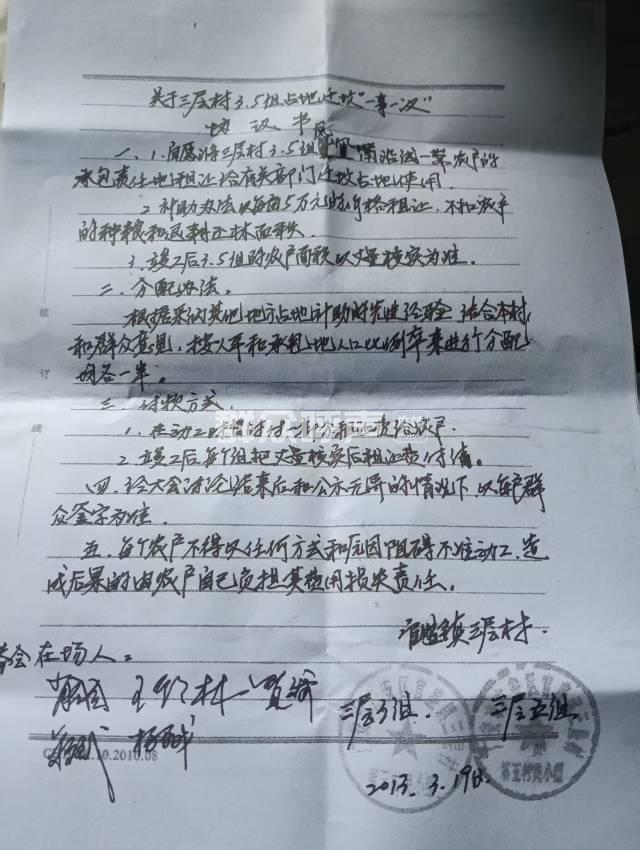 关于三层村3.5组占地迁坟"一事一议"
协议书
一、1.自愿将三层村3.5组 一带农户的
承包责任地租让给有关部门迁坟占地使用。
2.补助办法以每亩5万元的价格租让，不扣农户
的种粮和退耕还林面积。
3.竣工后3.5组的农户面积以丈量核实为准。
二、分配办法。
根据采纳其他地方占地补助的先进经验，结合本村
和群众意见，按人平和承包地人口比例平来进行分配
的各一半。
三、付款方式
1.在动工 时付一部分租让费给农户。
2.竣工后每个组把丈量核实后租让费付清。
四、经大会讨论结束后和公示无异的情况下，以每户群
众签字为准。
五、每个农户不得以任何方式和原因阻碍不准动工，造
成后果的由农户自己负担其费用损失责任。
镇三层村.
会在场人：
三层3组.
三层五组
2013.3.19日
.10.2010.08
第五村民小组
装
订
线
群众呼声